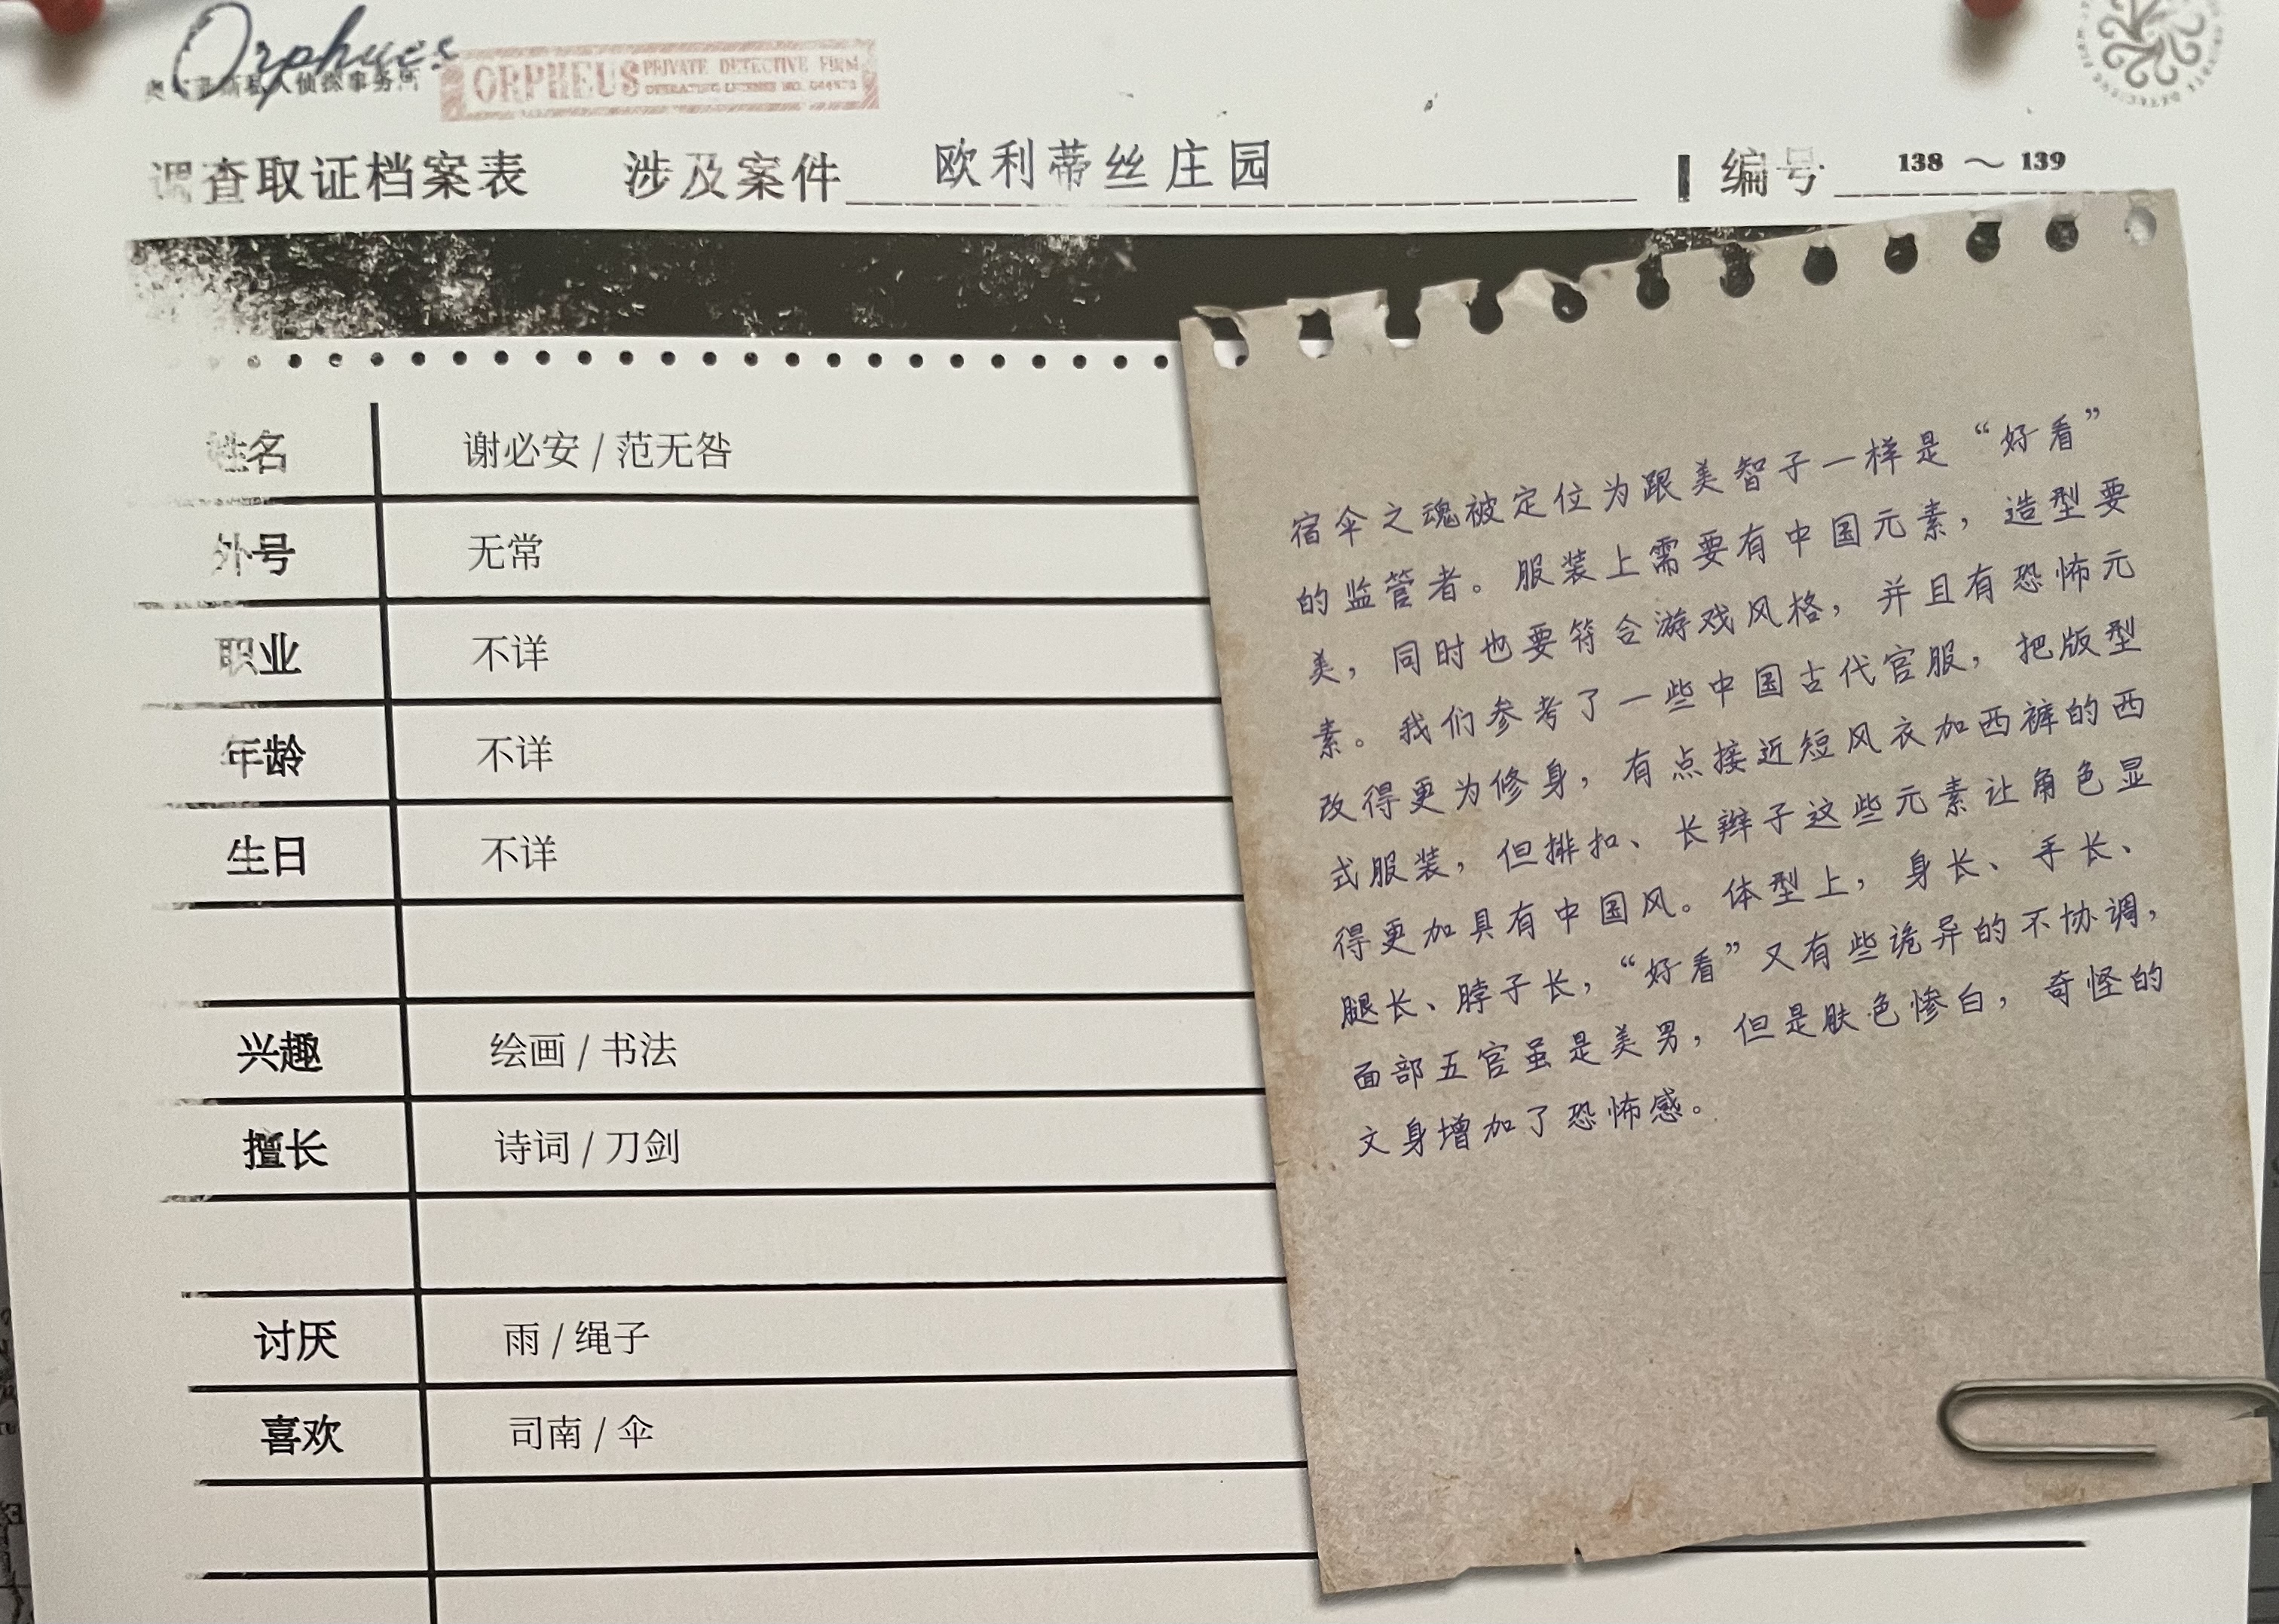 Orpheus
ORPHEUS PRIVATE DETECTIVE FIRM
调查取证档案表 涉及案件 欧利蒂丝庄园 编号 138～139
姓名 谢必安 / 范无咎
外号 无常
职业 不详
年龄 不详
生日 不详
兴趣 绘画 / 书法
擅长 诗词 / 刀剑
讨厌 雨 / 绳子
喜欢 司南 / 伞
宿伞之魂被定位为跟美智子一样是“好看”
的监管者。服装上需要有中国元素，造型要
美，同时也要符合游戏风格，并且有恐怖元
素。我们参考了一些中国古代官服，把版型
改得更为修身，有点接近短风衣加西裤的西
式服装，但排扣、长辫子这些元素让角色显
得更加具有中国风。体型上，身长、手长、
腿长、脖子长，“好看”又有些诡异的不协调，
面部五官虽是美男，但是肤色惨白，奇怪的
文身增加了恐怖感。